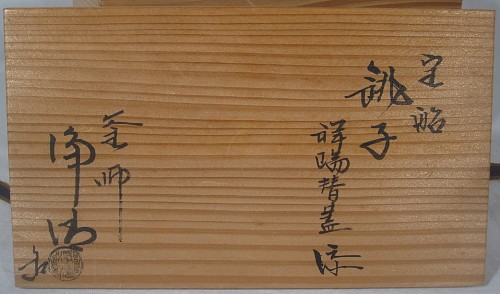 宝船
銚子
祥瑞替蓋 添
釜師
浄清